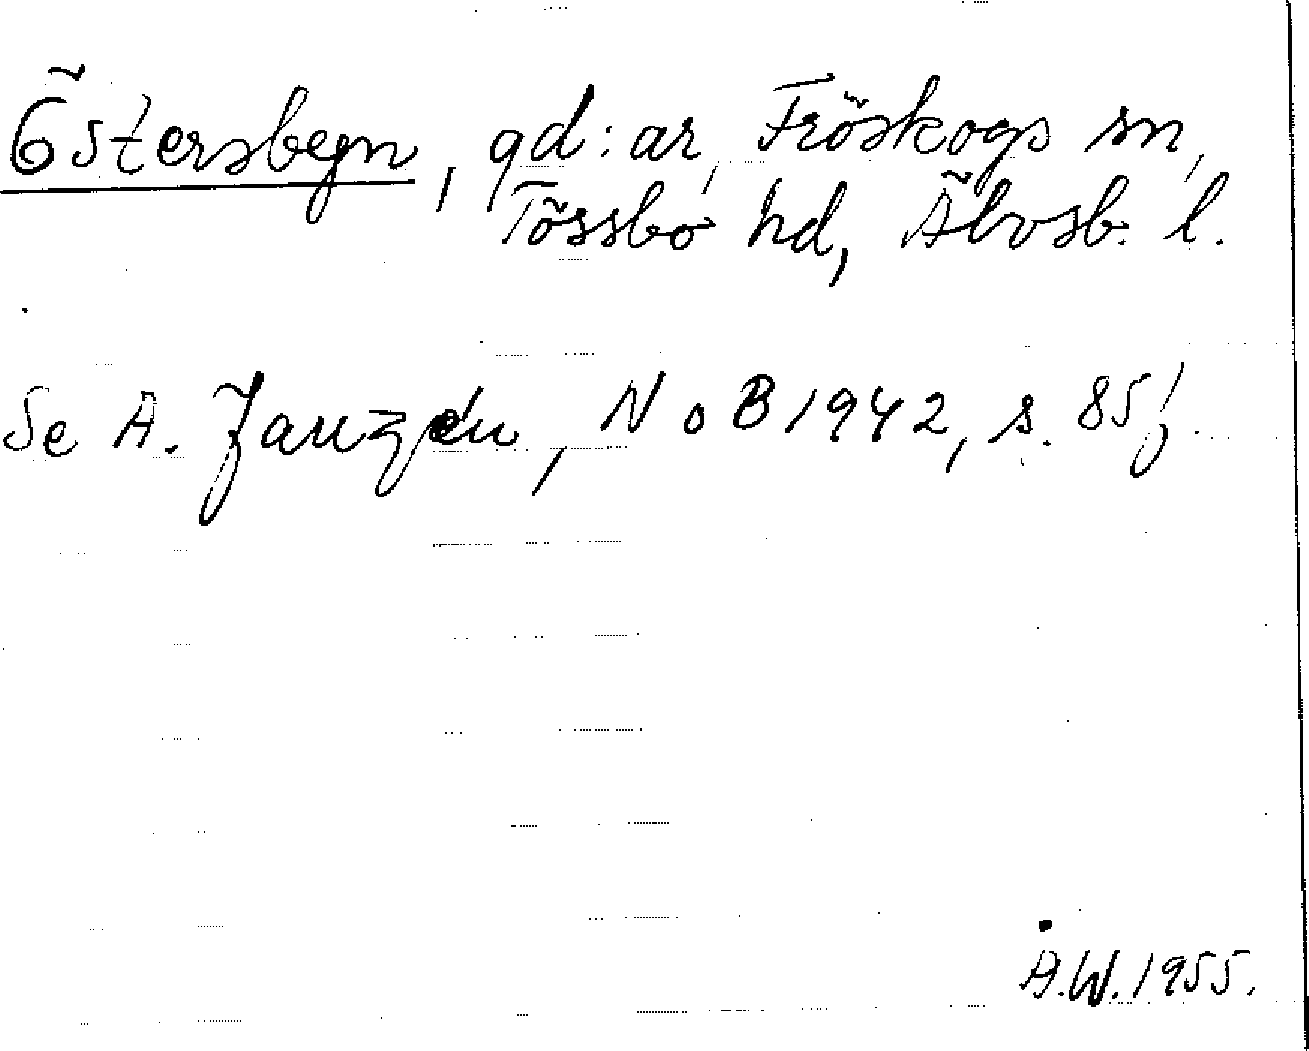 Östersbegn, gd:ar, Fröskogs sn,
Tössbo hd, Älvsb. l.
Se A. Janzén, NoB 1942, s. 85f.
Å.W. 1955.